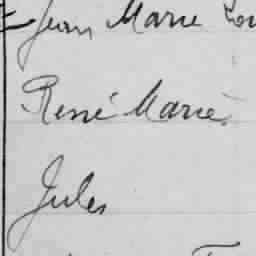 Jean Marie
René Marie
Jules